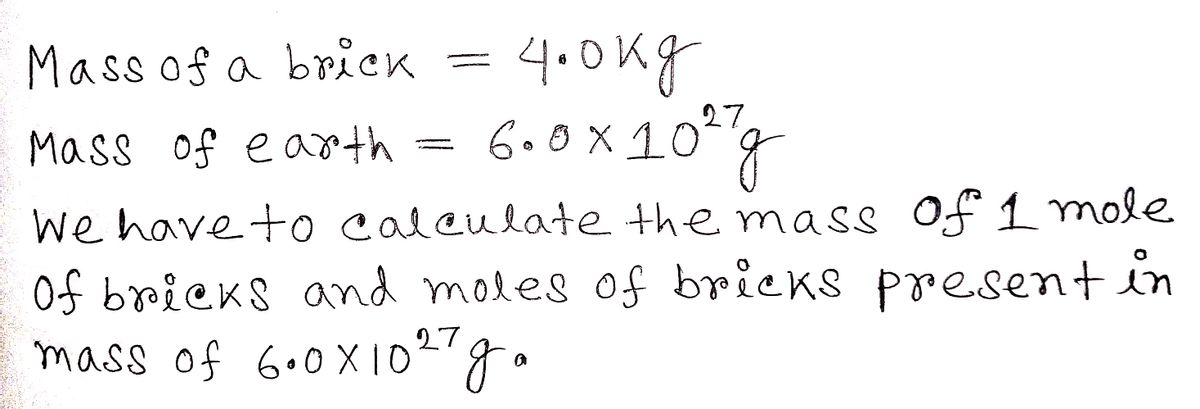 Mass of a brick = 4.0 Kg
Mass of earth = 6.0 × 10²⁷g
We have to calculate the mass of 1 mole
of bricks and moles of bricks present in
mass of 6.0 × 10²⁷ g.